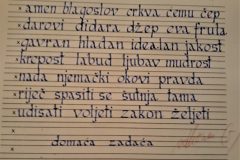 amen blagoslov crkva čemu čep
darovi didara džep ova fruta
gavran hladan idealan jakost
krepost labud ljubav mudrost
nada njemački okovi pravda
riječ spasiti se šutnja tama
udisati voljeti zakon željeti
domaća zadaća